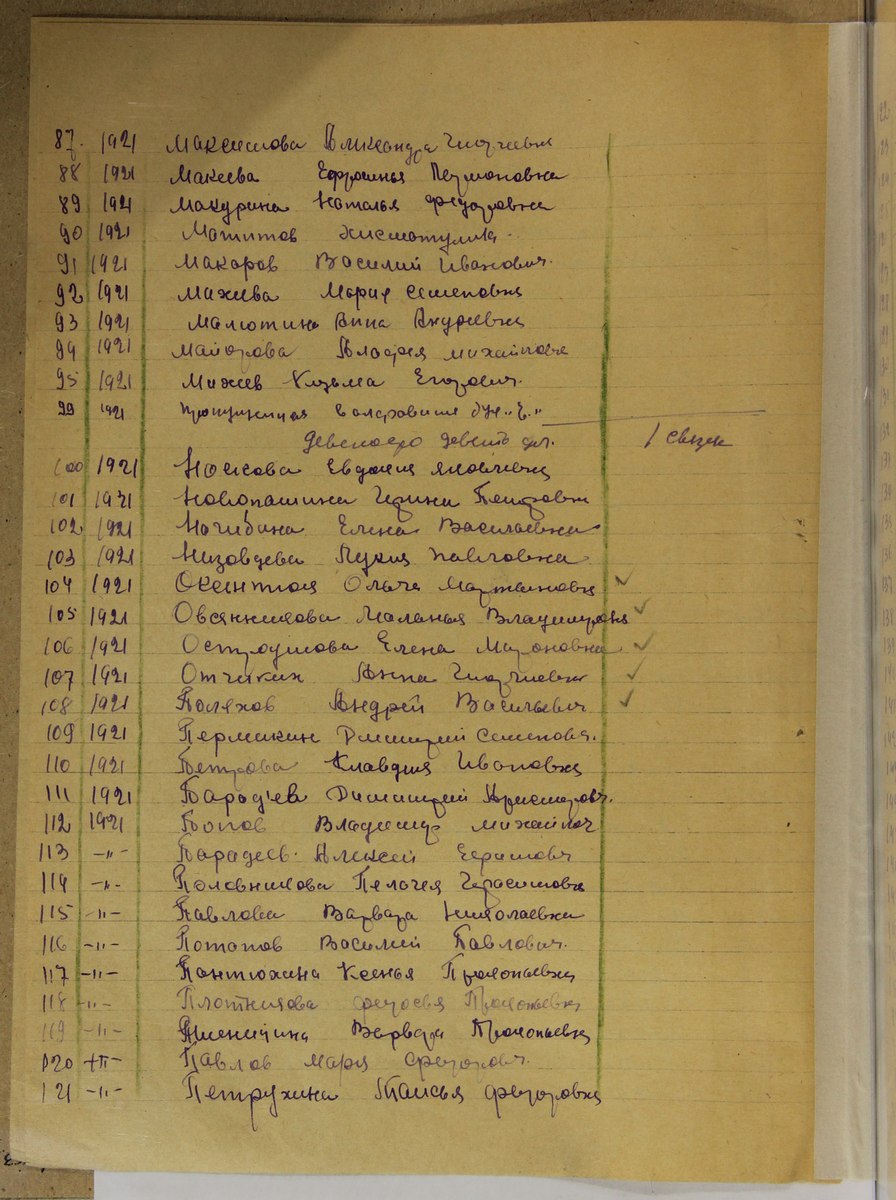 87. 1921 Максимова Александра Георгиевна
88 1921 Макеева Ефросинья
89 1921 Макурина Наталья Федоровна
90 1921 Матитов Хисматулла
91 1921 Макаров Василий Иванович.
92 1921 Махева Мария Семеновна
93 1921 Малютина Анна Андреевна
94 1921 Майорова Михайловна
95 1921 Михеев Кузьма Егорович.
99 1921
девяносто девять дел. 1 связка
100 1921 Носкова Евдокия Яковлевна
101 1921 Новопашина Ирина Петровна
102 1921 Елена Васильевна
103 1921 Низовцева Лукия Павловна
104 1921 Ольга Мартыновна
105 1921 Овсянникова Маланья Владимировна
106 1921 Остроумова Елена Мироновна
107 1921 Отчиких Анна Георгиевна
108 1921 Поляков Андрей Васильевич
109 1921 Пермикин Дмитрий Семенович.
110 1921 Петрова Клавдия Ивановна
111 1921 Дмитрий
112 1921 Попов Владимир Михайлович
113 -"- Алексей
114 -"- Половникова Пелагея Герасимовна
115 -"- Павлова Варвара Николаевна
116 -"- Потапов Василий Павлович.
117 -"- Пантюхина Ксенья Прокопьевна
118 -"- Плотникова Федосья Прокопьевна
119 -"- Пшеницина Варвара Прокопьевна
120 -"- Павлов Марк Федорович.
121 -"- Петрухина Таисья Федоровна